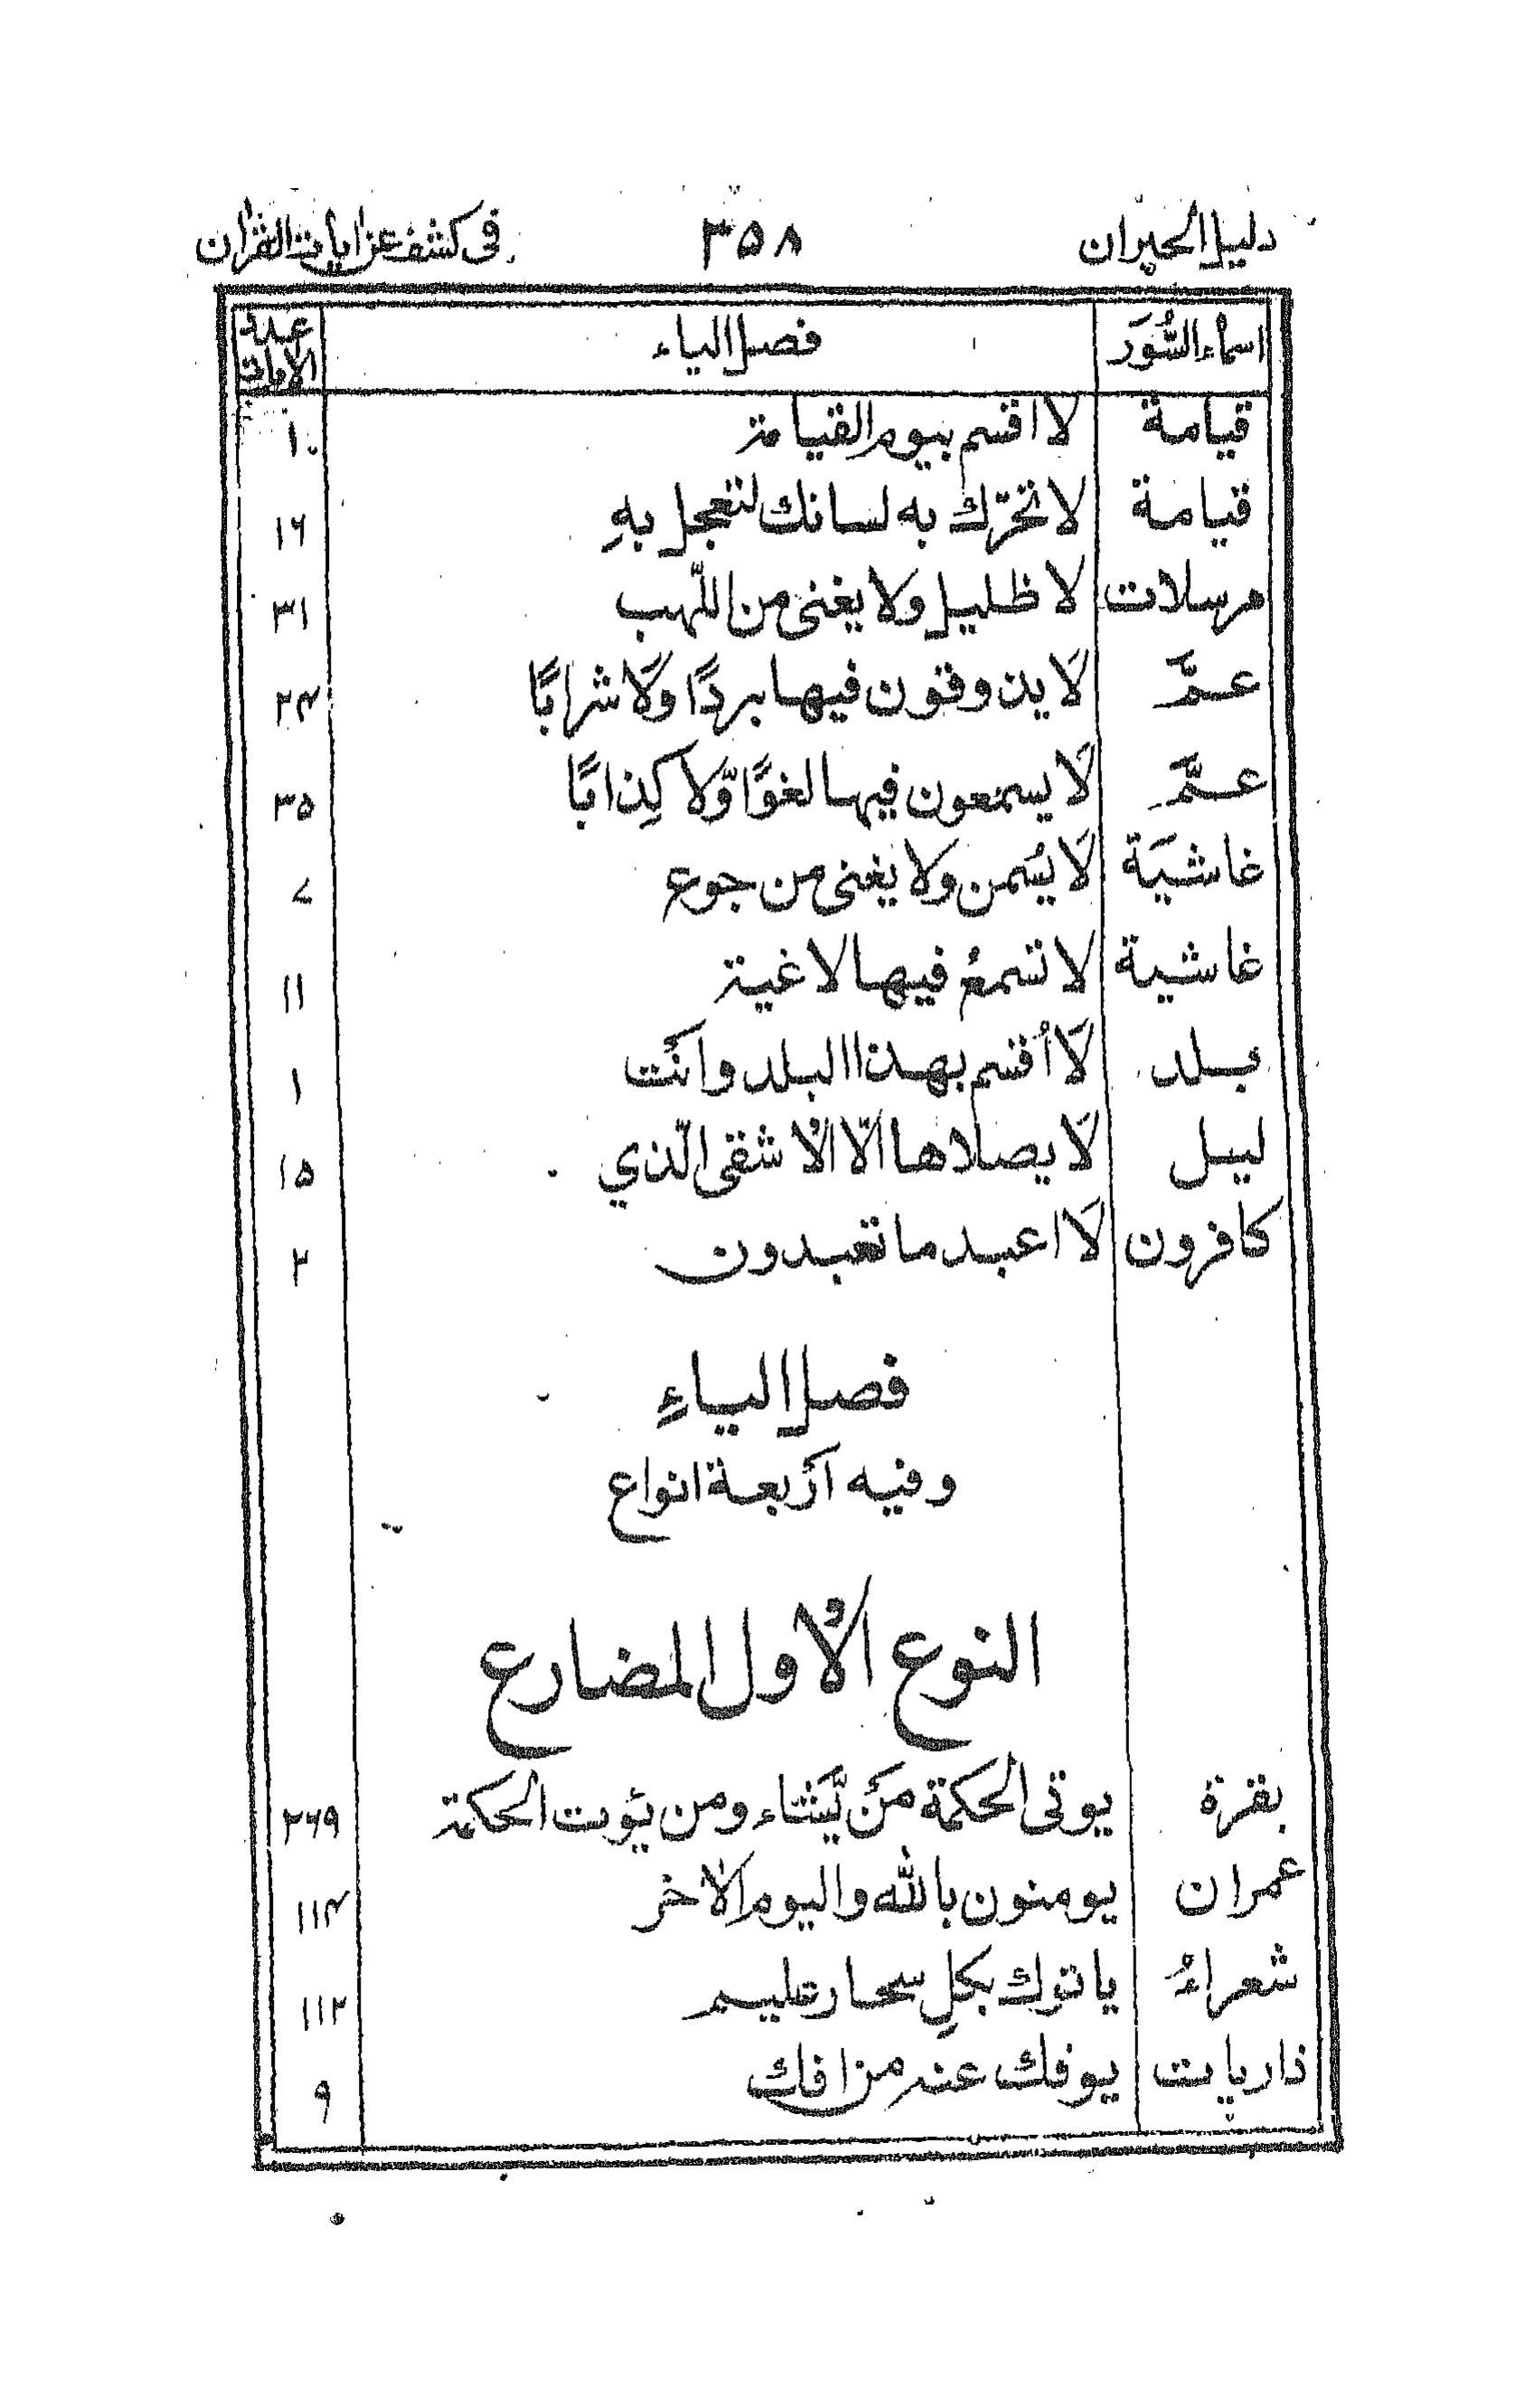 دليل الحيران ٣٥٨ في كشف عن ايات القران
اسماء السُّوَر فصل الياء عدد الايات
قيامة لا اقسم بيوم القيامة ١٠
قيامة لا تحرّك به لسانك لتعجل بهِ ١٦
مرسلات لا ظليل ولا يغنى من اللّهب ٣١
عمَّ لَا يذوقون فيها بردًا ولَا شرابًا ٢٤
عمَّ لَا يسمعون فيها لغوًا وّلا كِذابًا ٣٥
غاشيَة لَا يُسمن ولا يغنى من جوع ٧
غاشية لا تسمعُ فيها لاغية ١١
بلد لَا أُقسم بهذا البلد وانَت ١
ليل لَا يصلاها الّا الْاشقى الّذي ١٥
كافرون لَا اعبد ما تعبدون ٢
فصل الياءِ
وفيه اَربعة انواع
النوع الْاول المضارع
بقرة يوتى الحكمة مَن يَّشاء ومن يؤت الحكمة ٢٦٩
عمران يومنون بالله واليوم الاخر ١١٤
شعراءُ ياتوك بكلِ سحار عليم ١١٢
ذاريات يوفك عنه من افك ٩